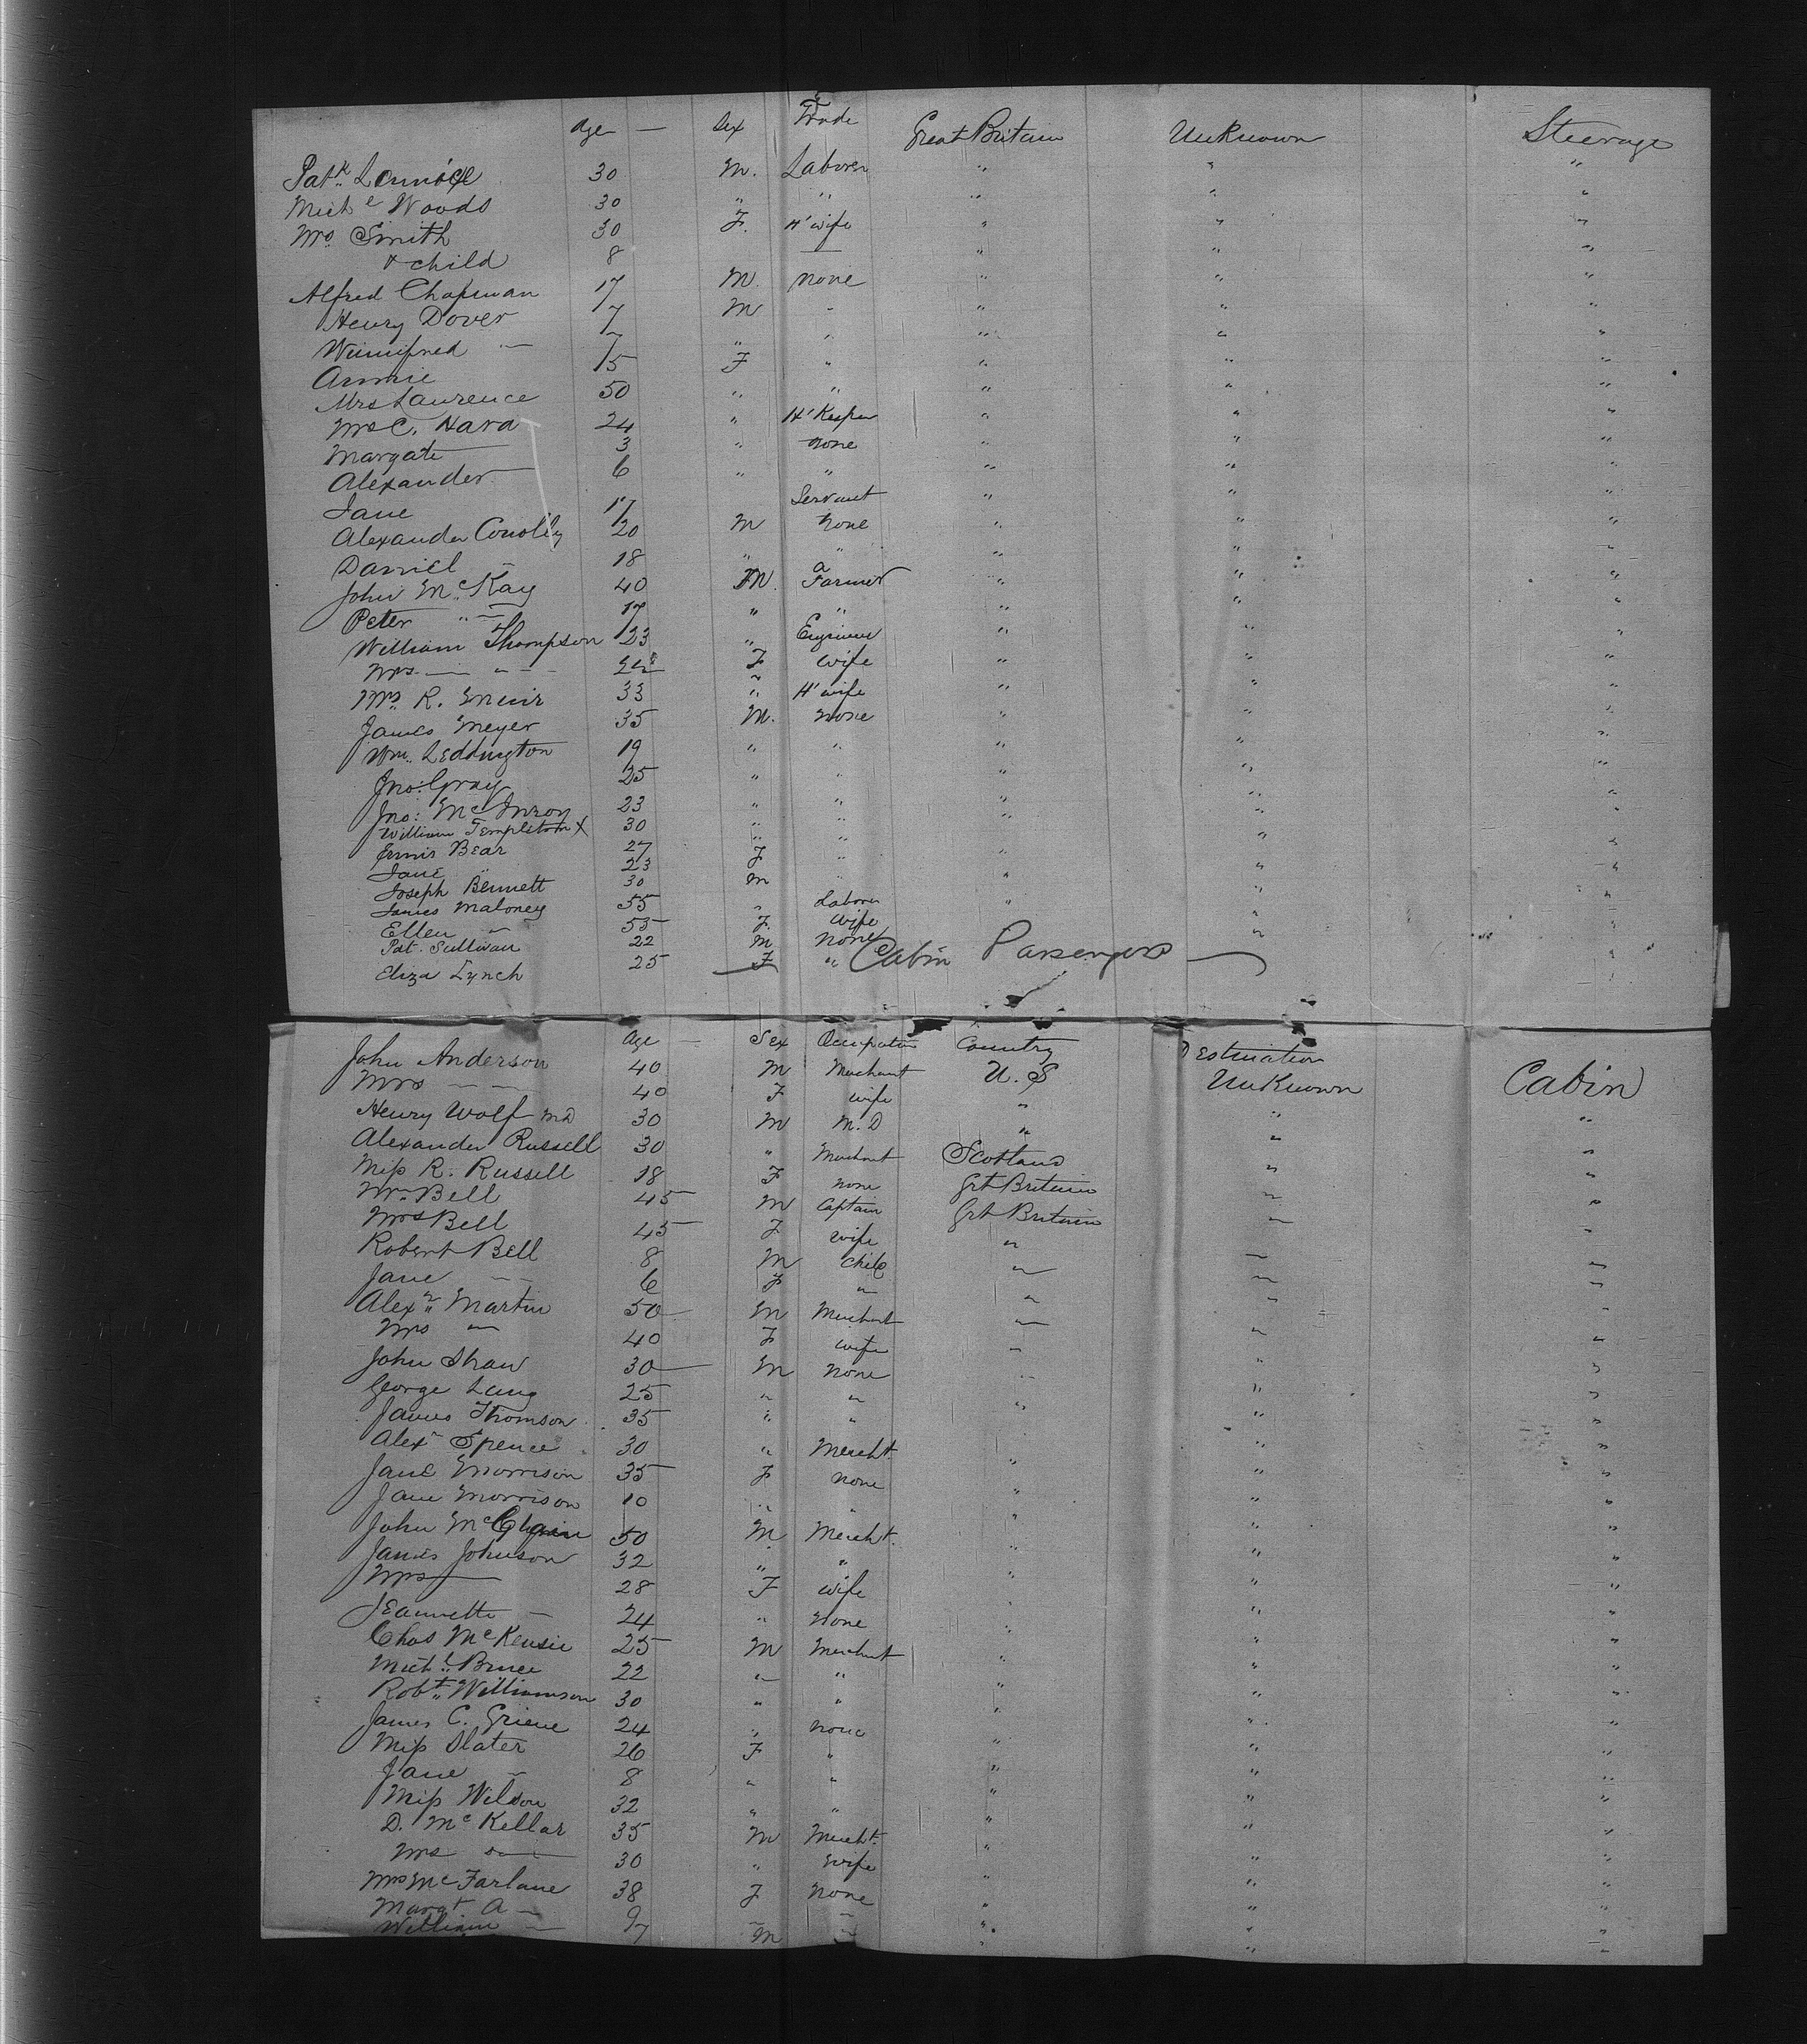 Age — Sex Trade Great Britain Unknown Steerage
Patk 30 M. Laborer " " "
Michl Woods 30 " " " " "
Mrs Smith 30 F. H'wife " " "
& child 8 — " " "
Alfred Chapman 17 M. none " " "
Henry Dover 7 M - " " "
Winnifred — 7 " " " " "
Annie 15 F " " " "
Mrs Laurence 50 " " " " "
Mrs C. Hara 24 " H'Keeper " " "
Margate 3 " none " " "
Alexander 6 " " " " "
Jane 17 Servant " " "
Alexander Conolly 20 M none " " "
Daniel — 18 " " " " "
John McKay 40 M. a Farmer " " "
Peter " — 17 " " " " "
William Thompson 23 " Engineer " " "
Mrs — " — F wife " " "
Mrs R. Muir 33 " H'wife " " "
James Meyer 35 M. none " " "
Wm. Leddington 19 " " " " "
Jno: Gray 25 " " " " "
Jno: McInroy 23 " " " " "
William Templeton x 30 " " " " "
Bear 27 " " " " "
Jane " 23 F " " " "
Joseph Bennett 30 M " " " "
James Maloney 55 " Laborer " " "
Ellen " 55 F. wife " "
Pat. Sullivan 22 M none " "
Eliza Lynch 25 F "
Cabin Passengers —
Age — Sex Occupation Country Destination
John Anderson 40 M Merchant U.S Unknown Cabin
Mrs — — 40 F wife " " "
Henry Wolf MD 30 M M.D " " "
Alexander Russell 30 " Merchant Scotland " "
Miss R. Russell 18 F none Grt Britain " "
Mr. Bell 45 M Captain Grt Britain " "
Mrs Bell 45 F wife " " "
Robert Bell 8 M child " " "
Jane — — 6 F " " " "
Alexr Martin 50 M Merchant " " "
Mrs — 40 F wife " " "
John Shaw 30 M none " " "
George Lang 25 " " " " "
James Thomson 35 " " " " "
Alexr Spence 30 " Mercht. " " "
Jane Morrison 35 F none " " "
Jane Morrison 10 " " " " "
John 50 M. Mercht. " " "
James Johnson 32 " " " " "
Mrs — 28 F wife " " "
Jeannette — 24 " none " " "
Chas McKensie 25 M Merchant " " "
Michl Bruce 22 " " " " "
Robt. Williamson 30 " " " " "
James C. Grieve 24 " none " " "
Miss Slater 26 F " " " "
Jane — 8 " " " " "
Miss Wilson 32 " " " " "
D. McKellar 35 M Mercht. " " "
Mrs — 30 " wife " " "
Mrs McFarlane 38 F none " " "
Margt. A — 9 — — " " "
William — 7 M — " " "